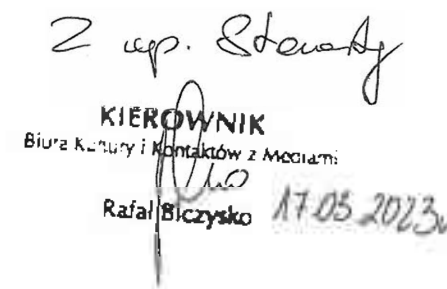 Z up. Starosty
KIEROWNIK
Biura Kultury i Kontaktów z Mediami
Rafał Biczysko 17.03.2023r